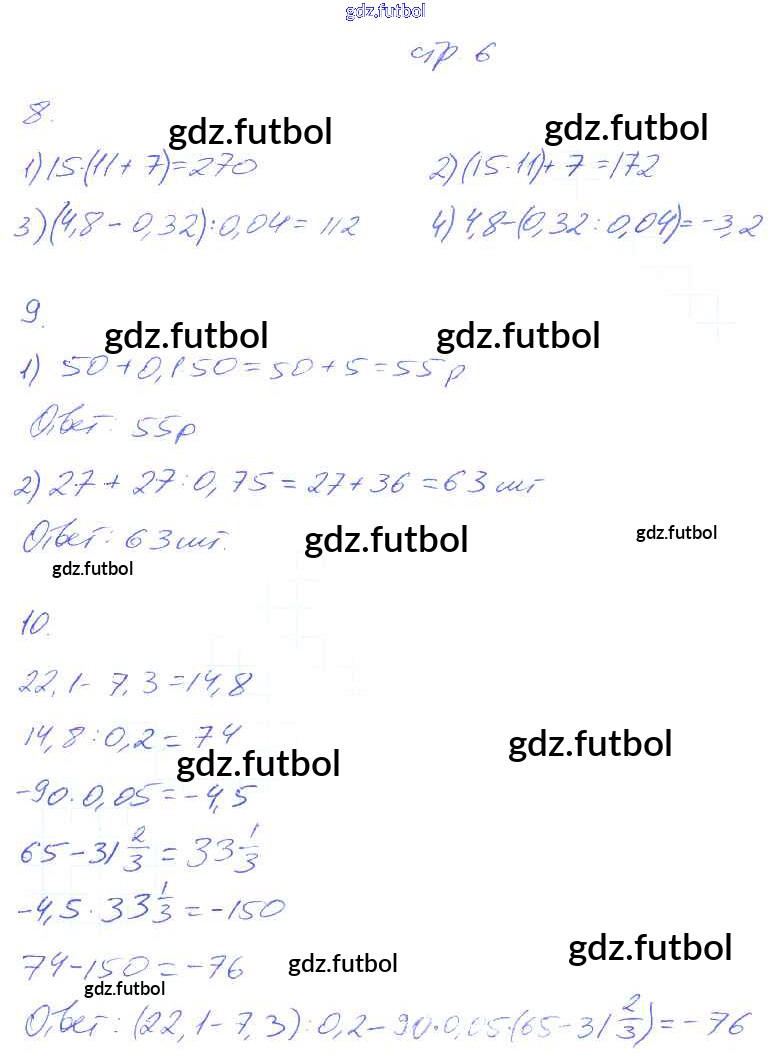 gdz.futbol
стр 6
8.
gdz.futbol gdz.futbol
1) 15·(11+7)=270 2) (15·11)+7=172
3) (4,8-0,32):0,04=112 4) 4,8-(0,32:0,04)=-3,2
9.
gdz.futbol gdz.futbol
1) 50+0,1·50=50+5=55р
Ответ: 55р
2) 27+27:0,75=27+36=63 шт
Ответ: 63 шт.
gdz.futbol gdz.futbol
gdz.futbol
10.
22,1-7,3=14,8
14,8:0,2=74
gdz.futbol gdz.futbol
-90·0,05=-4,5
65-31 2/3=33 1/3
-4,5·33 1/3=-150
gdz.futbol
74-150=-76
gdz.futbol
gdz.futbol
Ответ: (22,1-7,3):0,2-90·0,05·(65-31 2/3)=-76